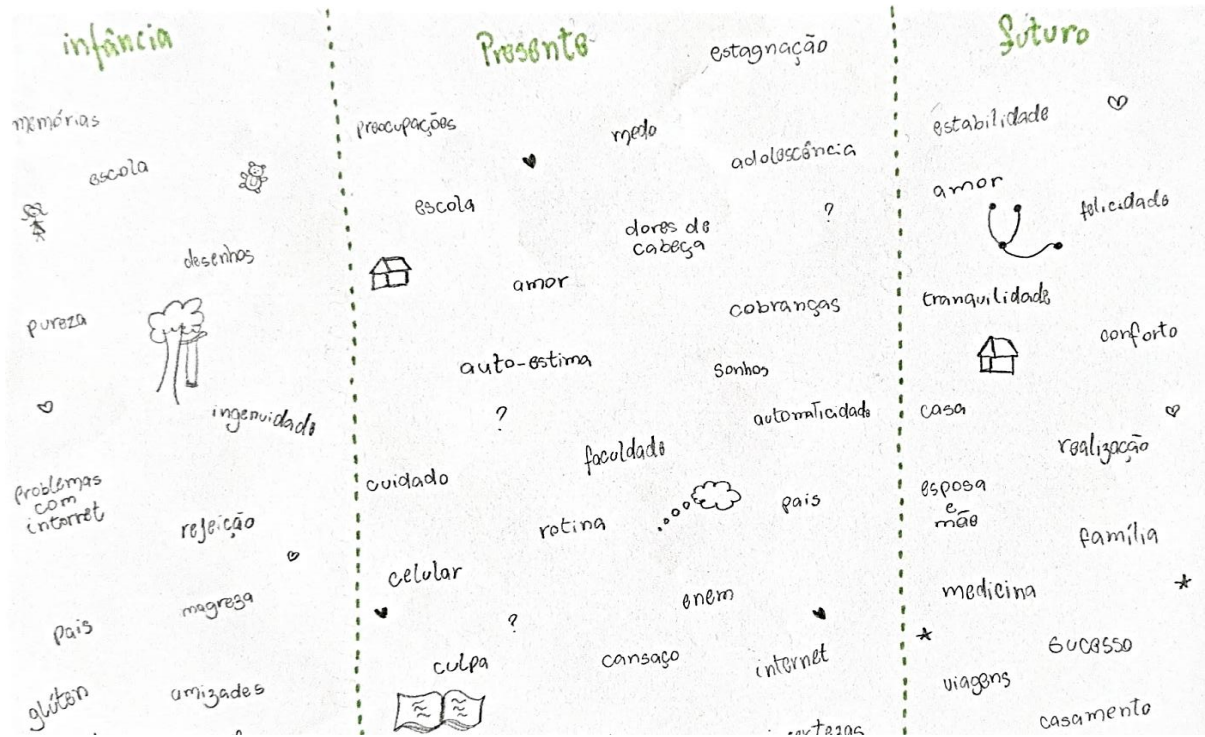 infância
memórias
escola
desenhos
pureza
ingenuidade
problemas
com
internet
rejeição
magreza
pais
glúten
amizades
Presente
estagnação
preocupações
medo
adolescência
escola
?
dores de
cabeça
amor
cobranças
auto-estima
sonhos
?
automaticidade
faculdade
cuidado
pais
rotina
celular
enem
?
culpa
cansaço
internet
futuro
estabilidade
amor
felicidade
tranquilidade
conforto
casa
realização
esposa
e
mãe
família
medicina
sucesso
viagens
casamento